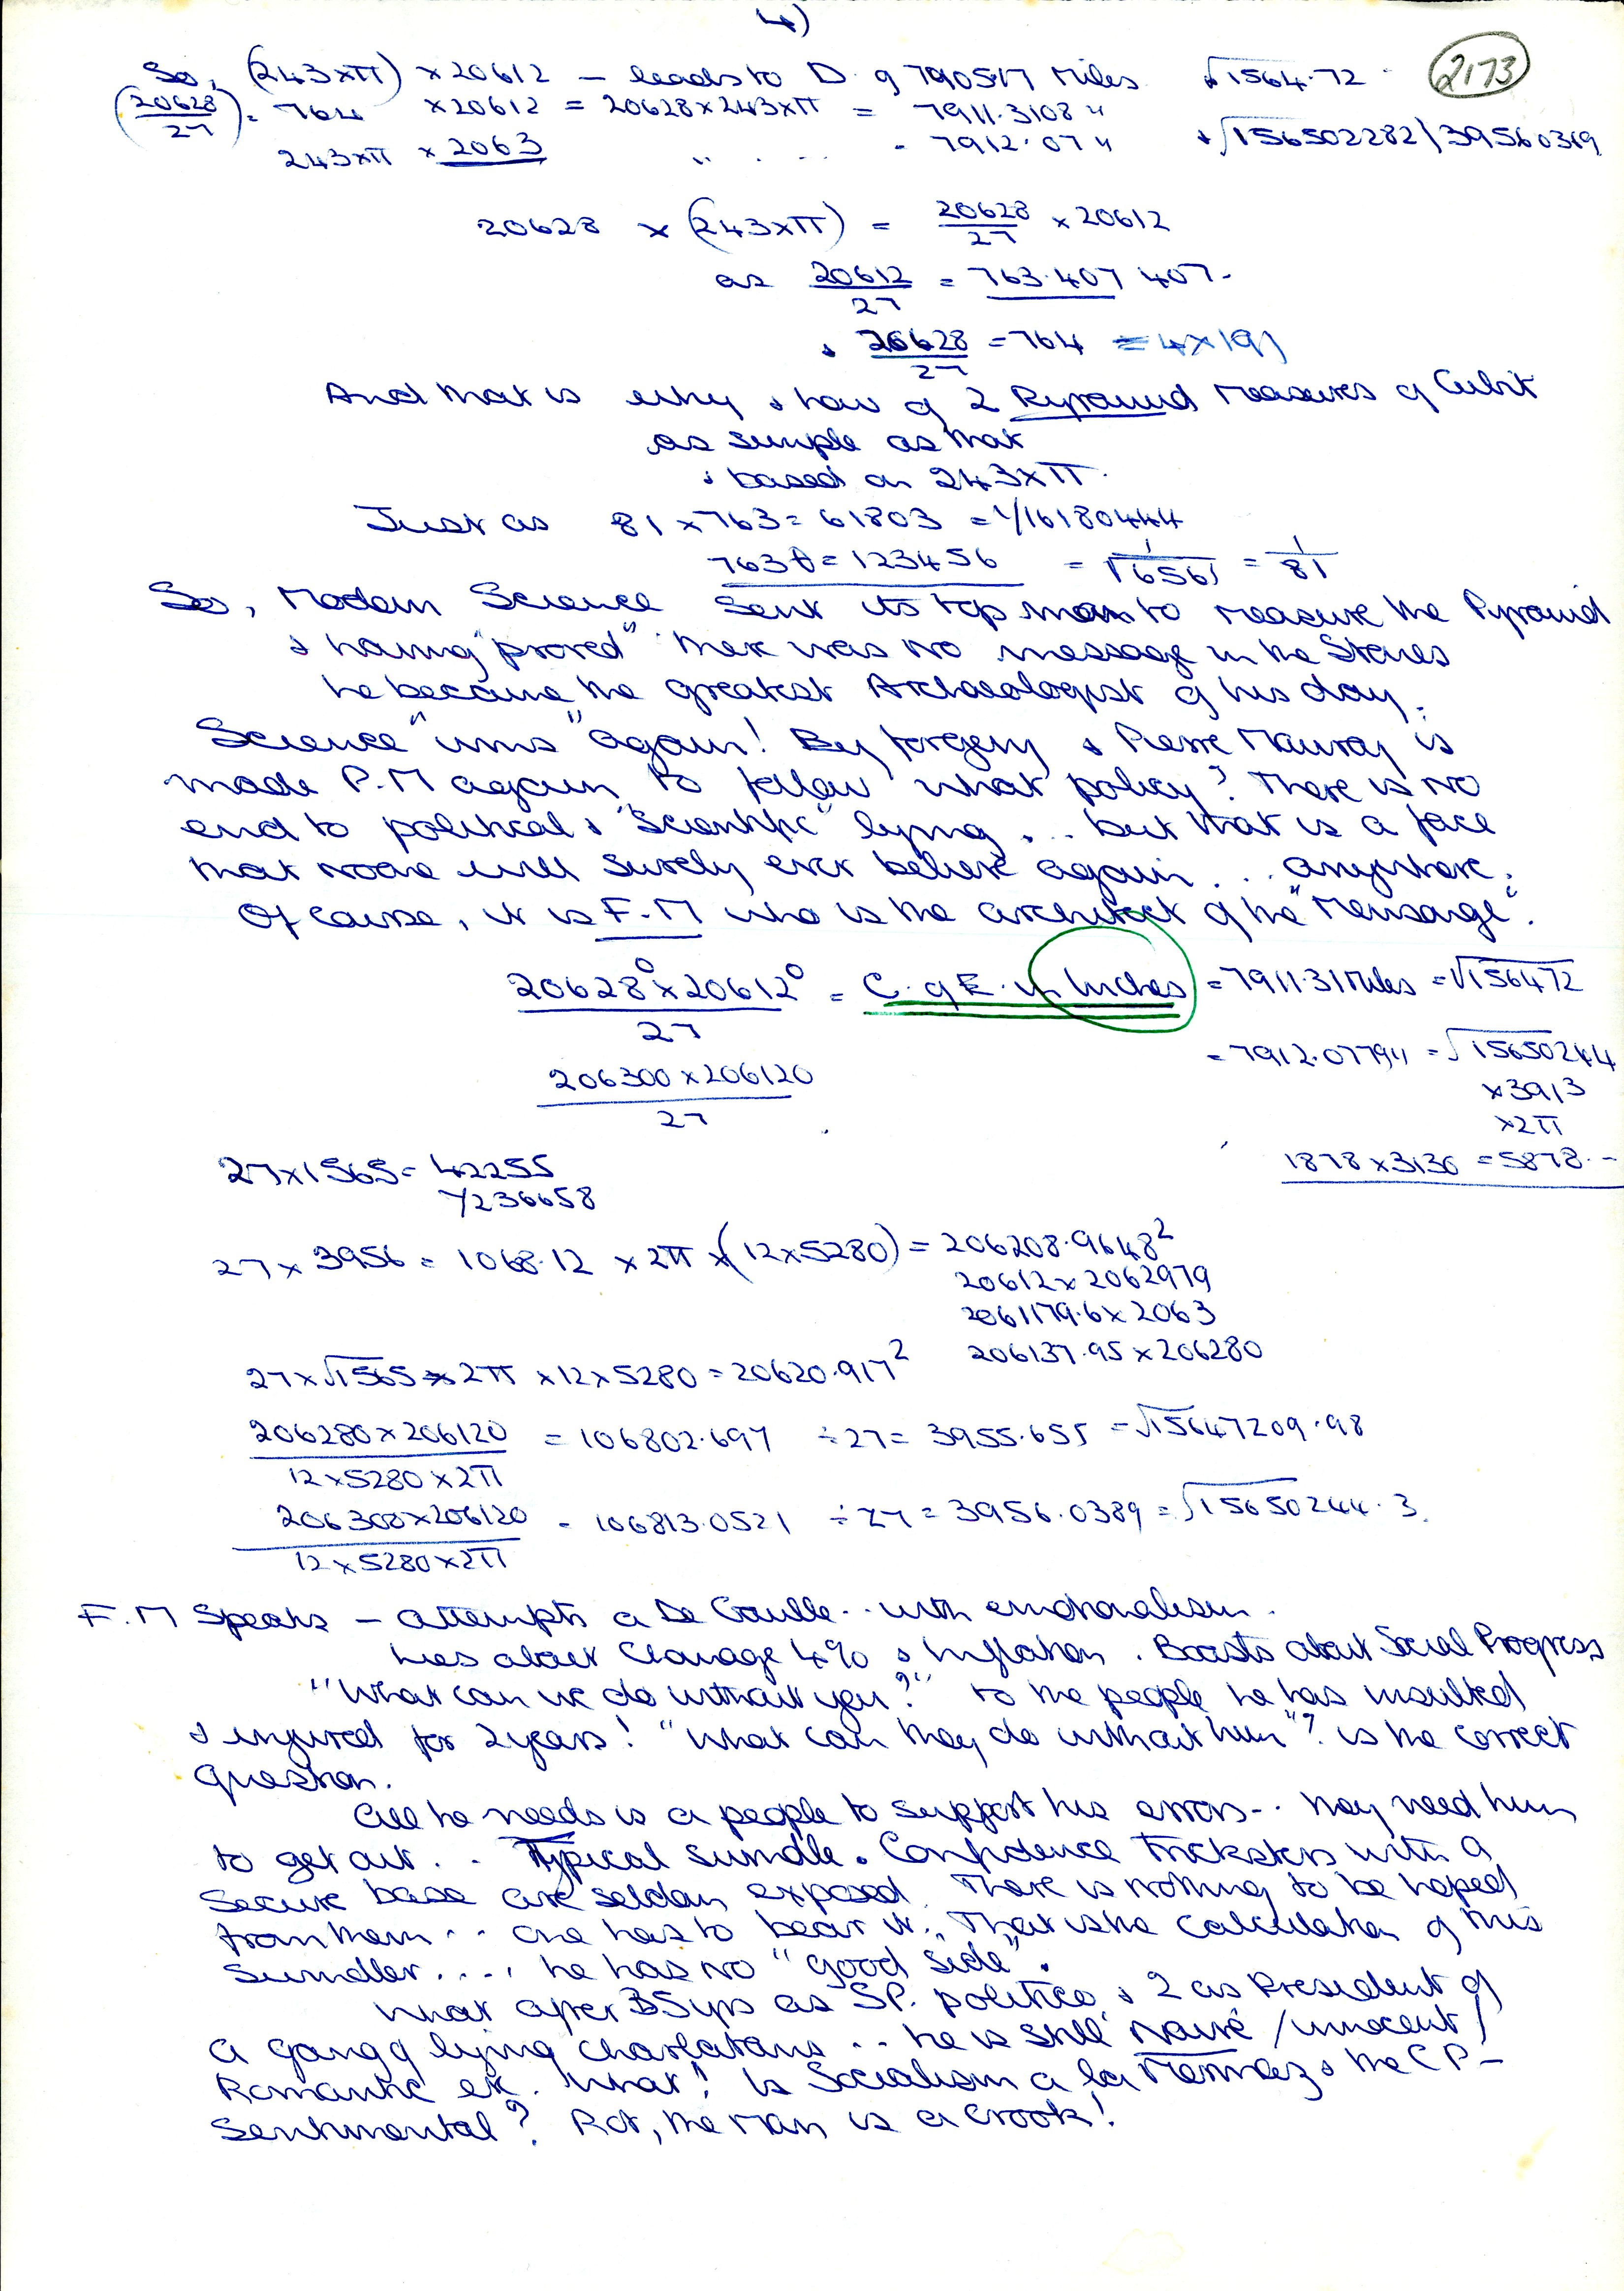 4)
2173
So, (243×π) × 20612 – leads to D. of 7905.17 Miles √1564.72
(20628/27) = 764 × 20612 = 20628×243×π = 7911.3108 "
243×π × 2063 " . .. = 7912.07 " √156502282 | 39560319
20628 × (243×π) = 20628/27 × 20612
as 20612/27 = 763.407 407-
& 20628/27 = 764 = 4×191
And that is why & how of 2 Pyramid Measures of Cubit
as simple as that
& based on 243×π.
Just as 81×763 = 61803 = 1/16180444
763 = 123456 = 1/√6561 = 1/81
So, Modern Science sent its top man to measure the Pyramid
& having "proved" there was no message in the Stones
he became the greatest Archaeologist of his day.
Science "wins" again! By forgery & Pierre Mauroy is
made P.M again, to follow what policy? There is no
end to political & "Scientific" lying... but that is a face
that noone will surely ever believe again... anywhere.
Of course, it is F.M who is the architect of the "Mensonge".
20628⁰ × 20612⁰ / 27 = C. of E. in Inches = 7911.31 Miles = √156472
= 7912.0779 " = √15650244
206300 × 206120 / 27
×3913
×2π
1878×3130 = 5878.--
27×1565 = 42255
1/236658
27 × 3956 = 1068.12 × 2π × (12×5280) = 206208.9648²
20612×2062979
2061179.6×2063
206137.95×206280
27×√1565 × 2π × 12×5280 = 20620.917²
206280×206120 / 12×5280×2π = 106802.697 ÷27 = 3955.655 = √15647209.98
206300×206120 / 12×5280×2π = 106813.0521 ÷27 = 3956.0389 = √15650244.3.
F.M Speaks – attempts a De Gaulle.. with emotionalism.
Lies about Chomage 4% & Inflation. Boasts about Social Progress
"What can we do without you?" to the people he has insulted
& injured for 2 years! "What can they do without him"? is the correct
question.
All he needs is a people to support his errors.. they need him
to get out. . . Typical swindle. Confidence tricksters with a
secure base are seldom exposed. There is nothing to be hoped
from them... one has to bear it. That is the calculation of this
swindler.... he has no "good side".
What after 35 yrs as S.P. politico, & 2 as President of
a gang of lying charlatans... he is still naive / innocent /
Romantic etc. What! Is Socialism a la & the C P –
Sentimental? Rot, the man is a crook!